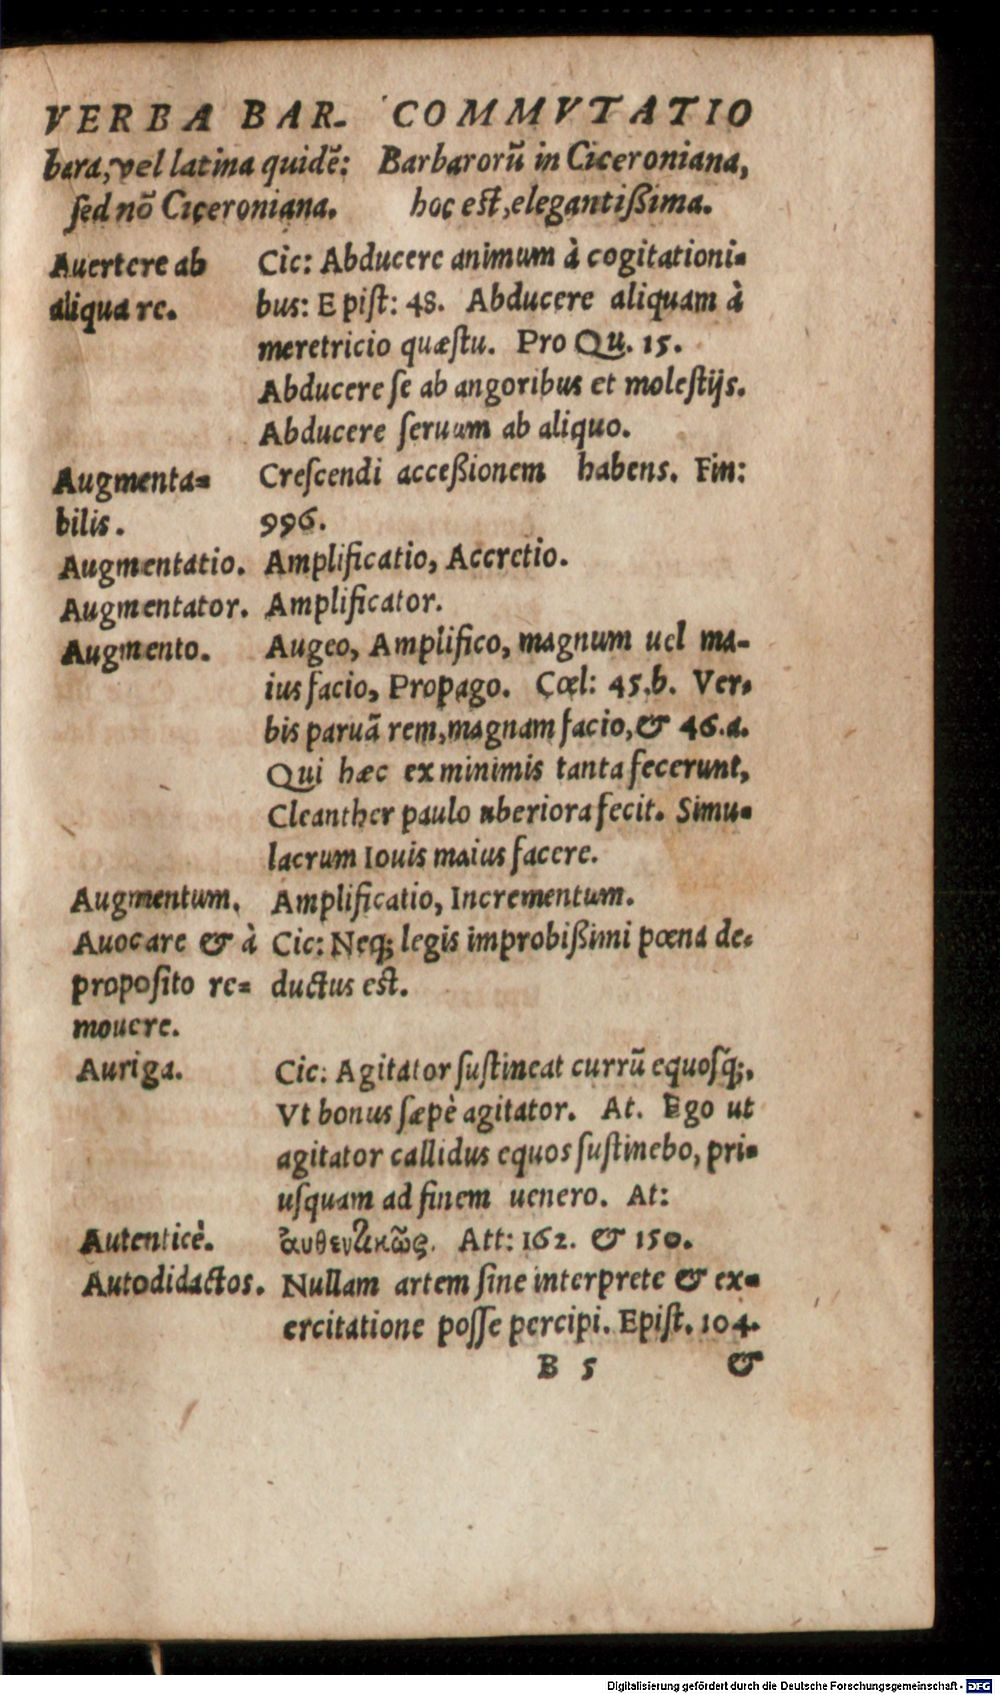 VERBA BAR- COMMVTATIO
bara, vel latina quidē: Barbarorū in Ciceroniana,
sed nō Ciceroniana. hoc est, elegantißima.
Auertere ab Cic: Abducere animum à cogitationi-
aliqua re. bus: Epist: 48. Abducere aliquam à
meretricio quæstu. Pro Qu. 15.
Abducere se ab angoribus et molestijs.
Abducere seruum ab aliquo.
Augmenta= Crescendi acceßionem habens. Fin:
bilis. 996.
Augmentatio. Amplificatio, Accretio.
Augmentator. Amplificator.
Augmento. Augeo, Amplifico, magnum uel ma-
ius facio, Propago. Cœl: 45.b. Ver-
bis paruā rem, magnam facio, & 46.a.
Qui hæc ex minimis tanta fecerunt,
Cleanther paulo uberiora fecit. Simu-
lacrum Iouis maius facere.
Augmentum. Amplificatio, Incrementum.
Auocare & à Cic: Neq; legis improbißimi pœna de-
proposito re= ductus est.
mouere.
Auriga. Cic: Agitator sustineat currū equosq́;.
Vt bonus sæpè agitator. At. Ego ut
agitator callidus equos sustinebo, pri-
usquam ad finem uenero. At:
Autenticè. ἀυθεντικῶς. Att: 162. & 150.
Autodidactos. Nullam artem sine interprete & ex-
ercitatione posse percipi. Epist. 104.
B 5 &
Digitalisierung gefördert durch die Deutsche Forschungsgemeinschaft - DFG